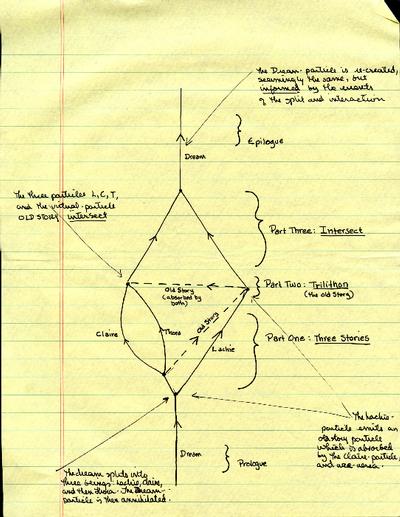 The Dream-particle is re-created,
seemingly the same, but
informed by the events
of the split and interaction
Epilogue
Dream
The three particles L, C, T,
and the virtual-particle
OLD STORY intersect
Part Three: Intersect
Old Story
(absorbed by
both)
Part Two: Trilithon
(the old Story)
Old Story
Claire
Thora
Lachie
Part One: Three Stories
The Lachie-
particle emits an
old story particle
which is absorbed
by the Claire-particle,
and vice-versa.
Dream
Prologue
The dream splits into
three beings: Lachie, Claire,
and then Thora. The Dream-
particle is then annihilated.